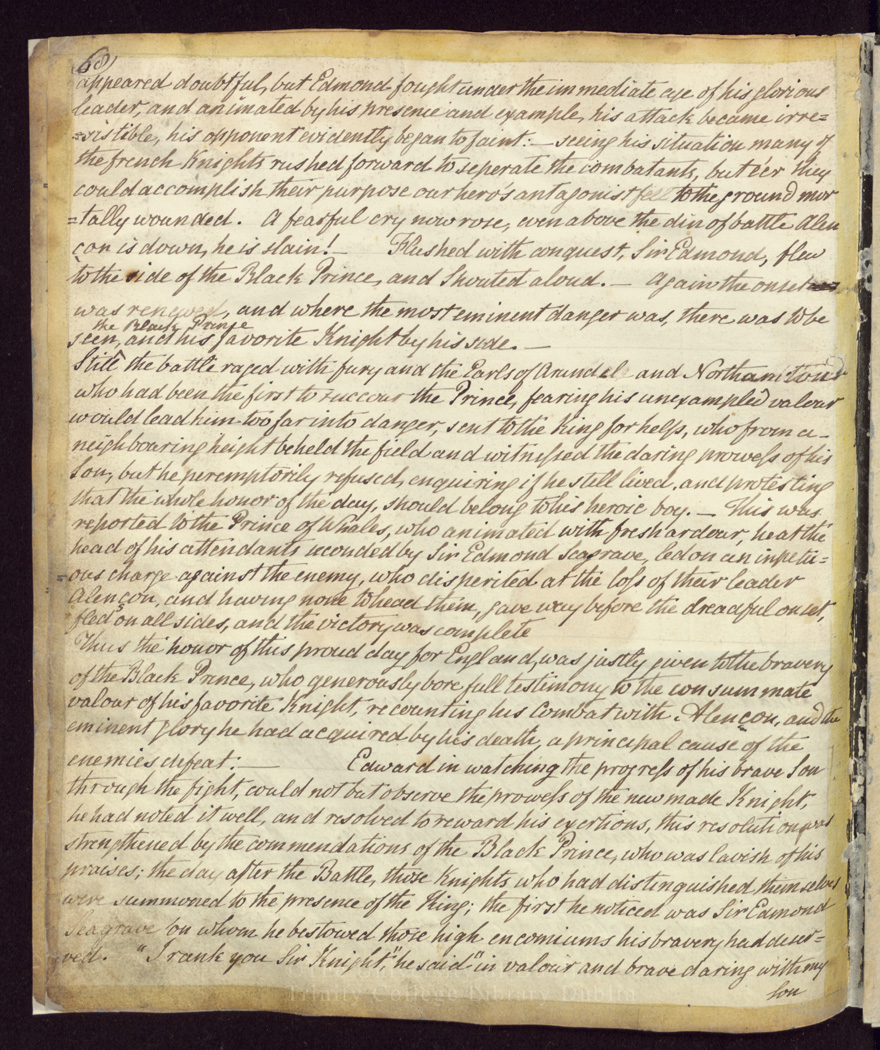 68)
appeared doubtful, but Edmond fought under the immediate eye of his glorious
leader, and animated by his presence and example, his attack became irre=
=sistible, his opponent evidently began to faint: — seeing his situation many of
the french Knights rushed forward to seperate the combatants, but e'er they
could accomplish their purpose our hero's antagonist fell to the ground mor
=tally wounded. A fearful cry now rose, even above the din of battle Alen
çon is down, he is slain! — Flushed with conquest, Sir Edmond, flew
to the side of the Black Prince, and shouted aloud. — Again the onset
was renewed, and where the most eminent danger was, there was to be
the Black Prince
seen, and his favorite Knight by his side. —
Still the battle raged with fury and the Earls of Arundel and Northamton
who had been the first to succour the Prince, fearing his unexampled valour
would lead him too far into danger, sent to the King for help, who from a
neighbouring height beheld the field and witnessed the daring prowess of his
Son, but he peremptorily refused, enquiring if he still lived, and protesting
that the whole honor of the day, should belong to his heroic boy. — This was
reported to the Prince of Whales, who animated with fresh ardour, he at the
head of his attendants seconded by Sir Edmond Seagrave, led on an impetu=
=ous charge against the enemy, who dispirited at the loss of their leader
Alençon, and having none to head them, gave way before the dreadful onset,
fled on all sides, and the victory was complete
Thus the honor of this proud day for England, was justly given to the bravery
of the Black Prince, who generously bore full testimony to the consummate
valour of his favorite Knight, recounting his Combat with Alençon, and the
eminent glory he had acquired by his death, a principal cause of the
enemies defeat: — Edward in watching the progress of his brave Son
through the fight, could not but observe the prowess of the new made Knight,
he had noted it well, and resolved to reward his exertions, this resolution was
strengthened by the commendations of the Black Prince, who was lavish of his
praises; the day after the Battle, those Knights who had distinguished themselves
were summoned to the presence of the King; the first he noticed was Sir Edmond
Seagrave on whom he bestowed those high encomiums his bravery had deser=
ved. "I rank you Sir Knight," he said "in valour and brave daring with my
Son